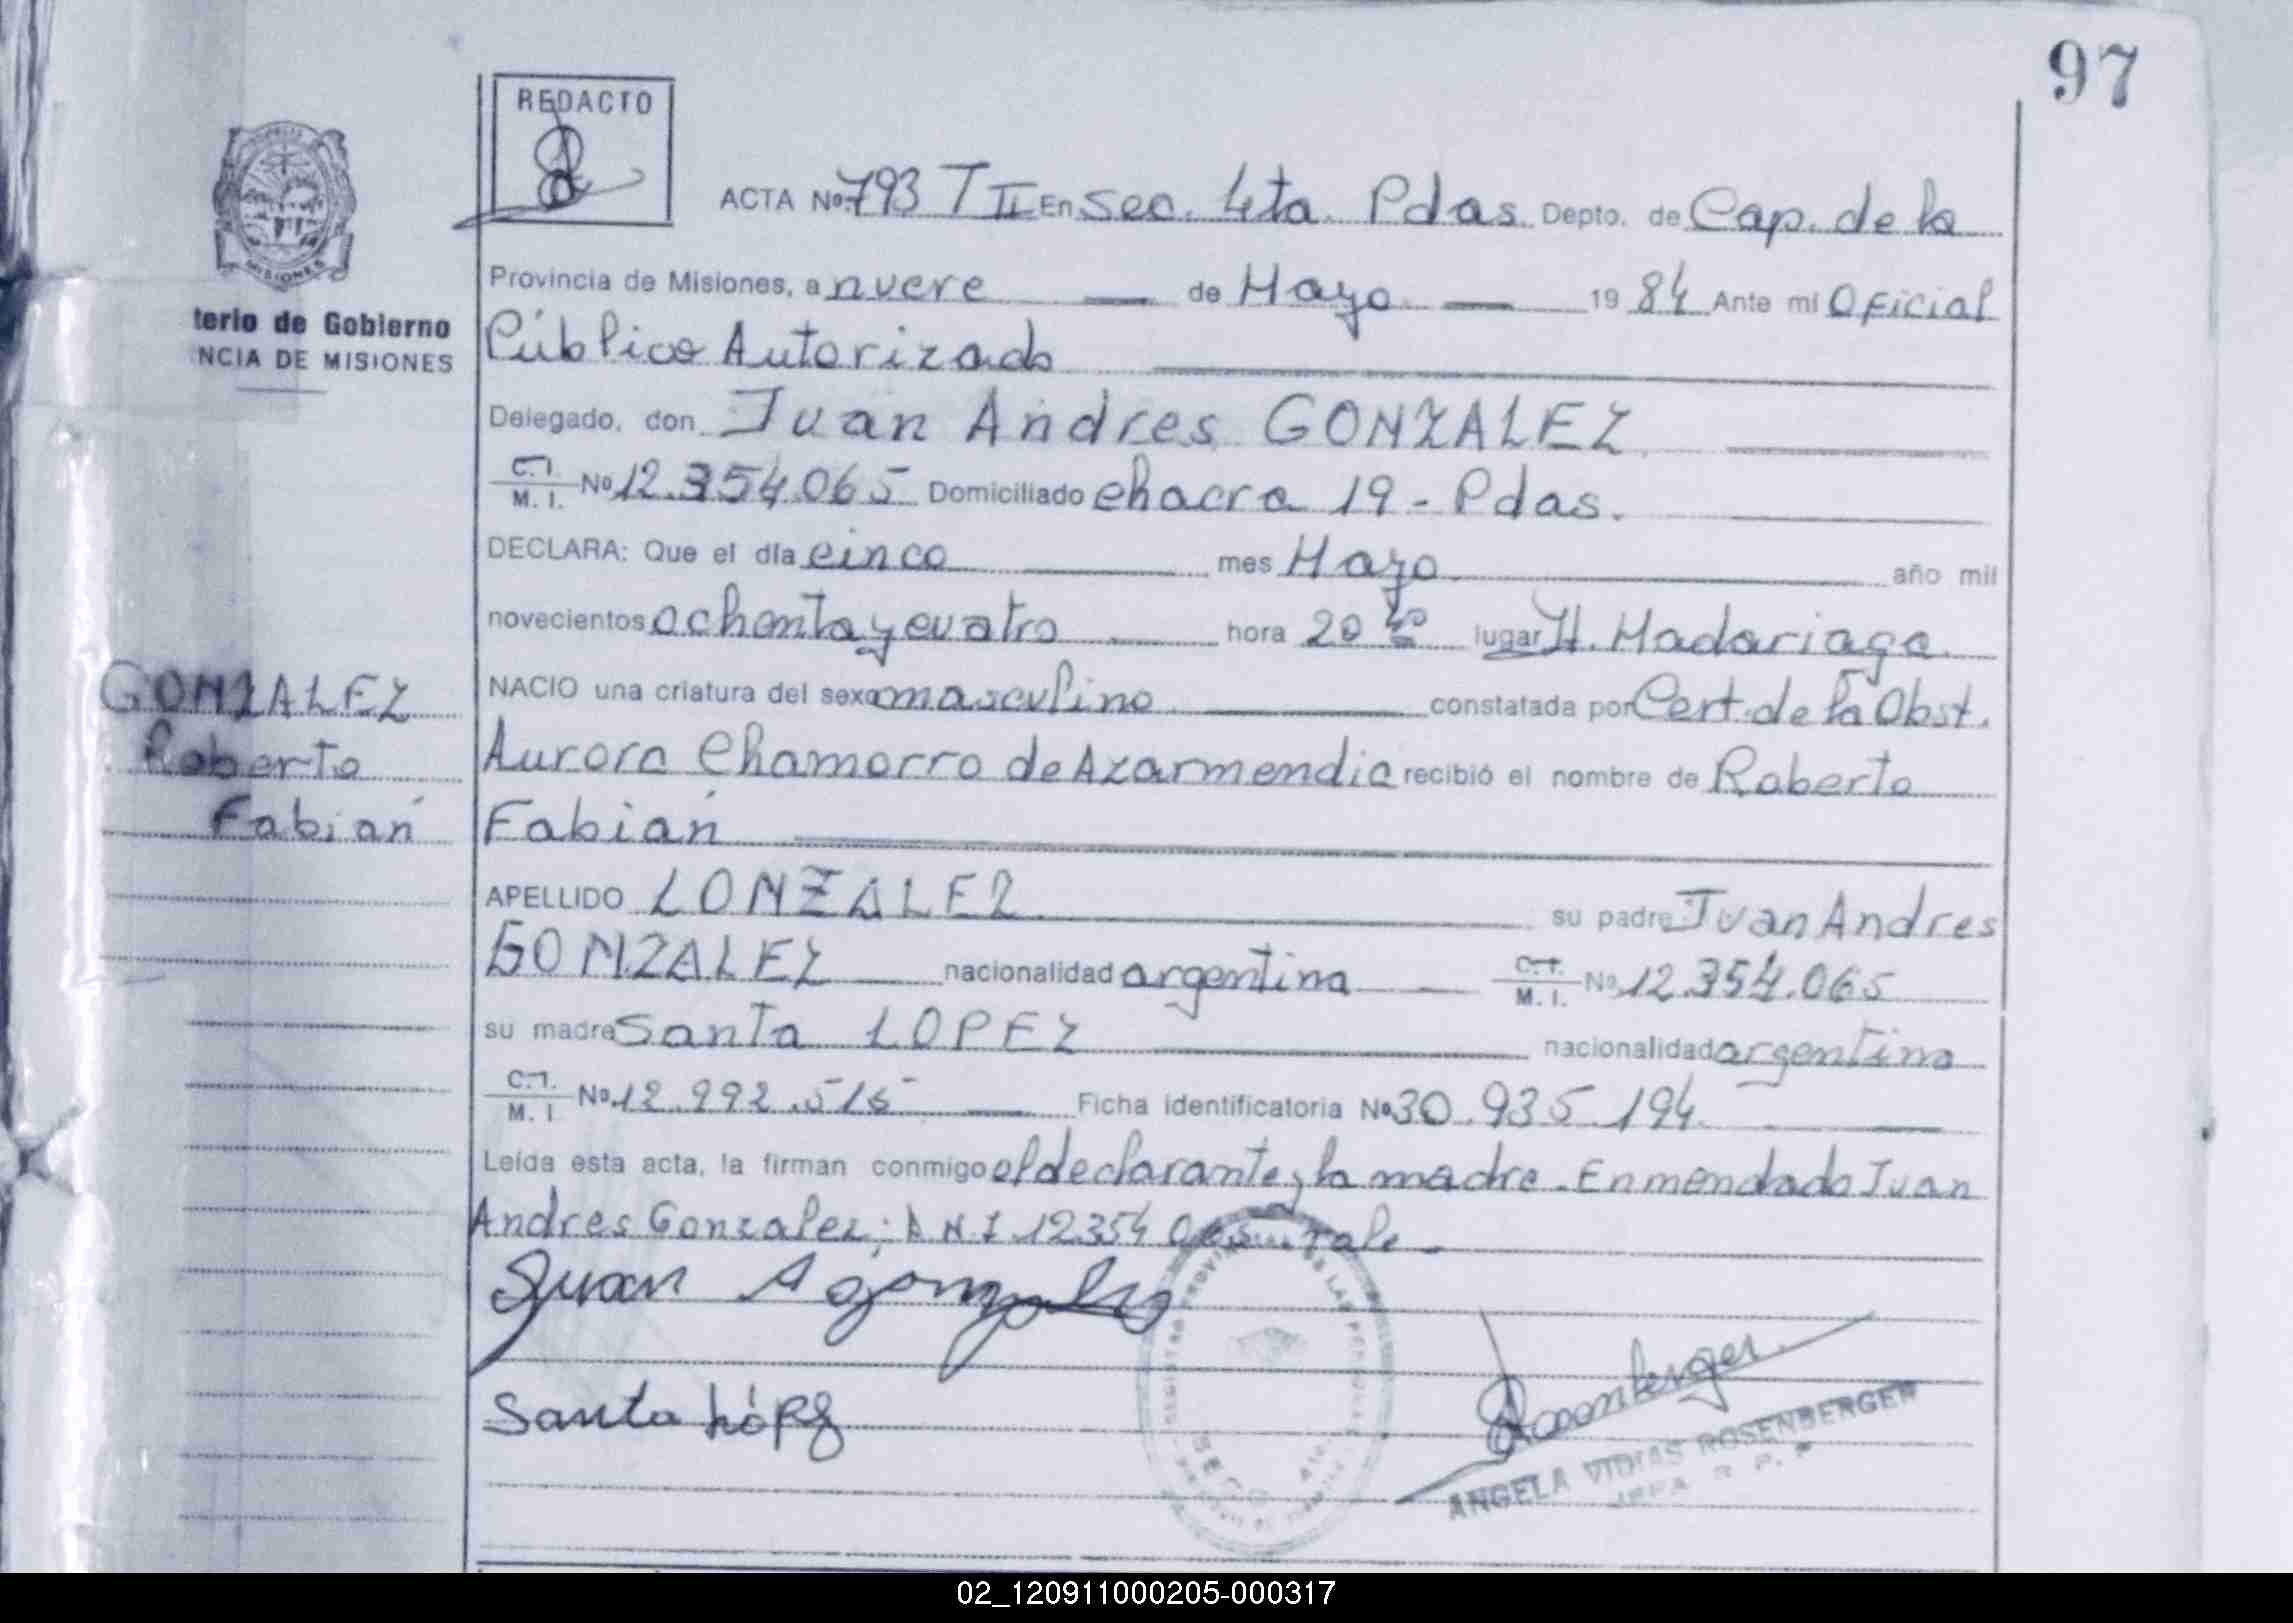 97
REDACTO
MISIONES
terio de Gobierno
NCIA DE MISIONES
ACTA No. 793 T II En Sec. 4ta. Pdas. Depto. de Cap. de la
Provincia de Misiones, a nueve de Mayo 19 84 Ante mi Oficial
Público Autorizado
Delegado, don Juan Andres GONZALEZ
C.I. M. I. No 12.354.065 Domiciliado chacra 19 - Pdas.
DECLARA: Que el día cinco mes Mayo año mil
novecientos ochenta y cuatro hora 20 40 lugar H. Madariaga
NACIO una criatura del sexo masculino constatada por Cert. de la Obst.
Aurora Chamorro de Azarmendia recibió el nombre de Roberto
Fabián
GONZALEZ
Roberto
Fabián
APELLIDO GONZALEZ su padre Juan Andres
GONZALEZ nacionalidad argentina C.I. M. I. No 12.354.065
su madre Santa LOPEZ nacionalidad argentina
C.I. M. I. No 12.992.515 Ficha identificatoria No 30.935.194
Leída esta acta, la firman conmigo el declarante y la madre. Enmendado Juan
Andres Gonzalez; D.N.I. 12.354.065 Vale
Juan A Gonzalez
Santa López
Rosenberger
ANGELA VIDIAS ROSENBERGER
JEFA R. P.
02_120911000205-000317